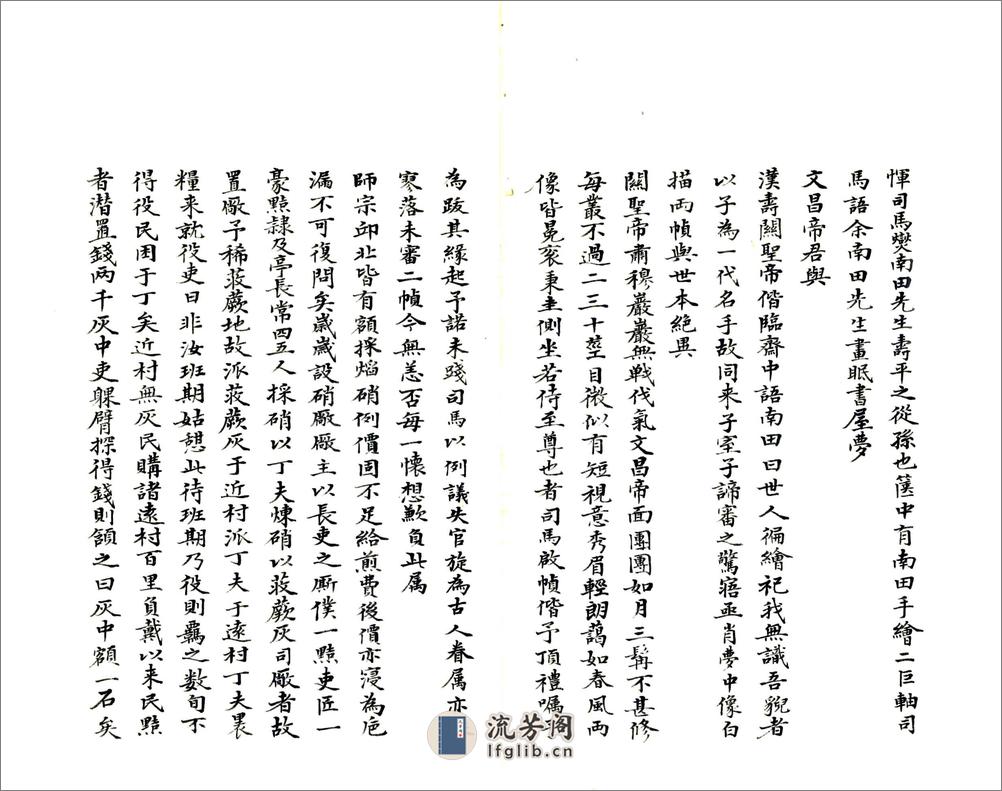 惲司馬燮南田先生壽平之從孫也篋中有南田手繪二巨軸司
馬語余南田先生晝眠書屋夢
文昌帝君與
漢壽關聖帝偕臨齋中語南田曰世人徧繪祀我無識吾貌者
以子為一代名手故同来子室子諦審之驚寤亟肖夢中像白
描兩幀與世本絶異
關聖帝肅穆巖巖無戰伐氣文昌帝面團團如月三髯不甚修
每叢不過二三十莖目微似有短視意秀眉輕朗藹如春風兩
像皆冕衮秉圭側坐若待至尊也者司馬啟幀偕予頂禮嘱
為跋其緣起予諾未踐司馬以例議失官旋為古人眷属亦
寥落未審二幀今無恙否每一懷想歉負此属
師宗邱北皆有額採焰硝例價固不足給煎費後價亦寖為巵
漏不可復問矣歲歲設硝廠廠主以長吏之厮僕一黠吏匠一
豪黠隷及亭長常四五人採硝以丁夫煉硝以菽蕨灰司廠者故
置廠予稀菽蕨地故派菽蕨灰于近村派丁夫于遠村丁夫裹
糧来就役吏曰非汝班期姑憇此待班期乃役則羈之数旬不
得役民困于丁矣近村無灰民購諸遠村百里負戴以来民黠
者潜置錢兩千灰中吏躶臂探得錢則頷之曰灰中額一石矣
流芳阁
lfglib.cn